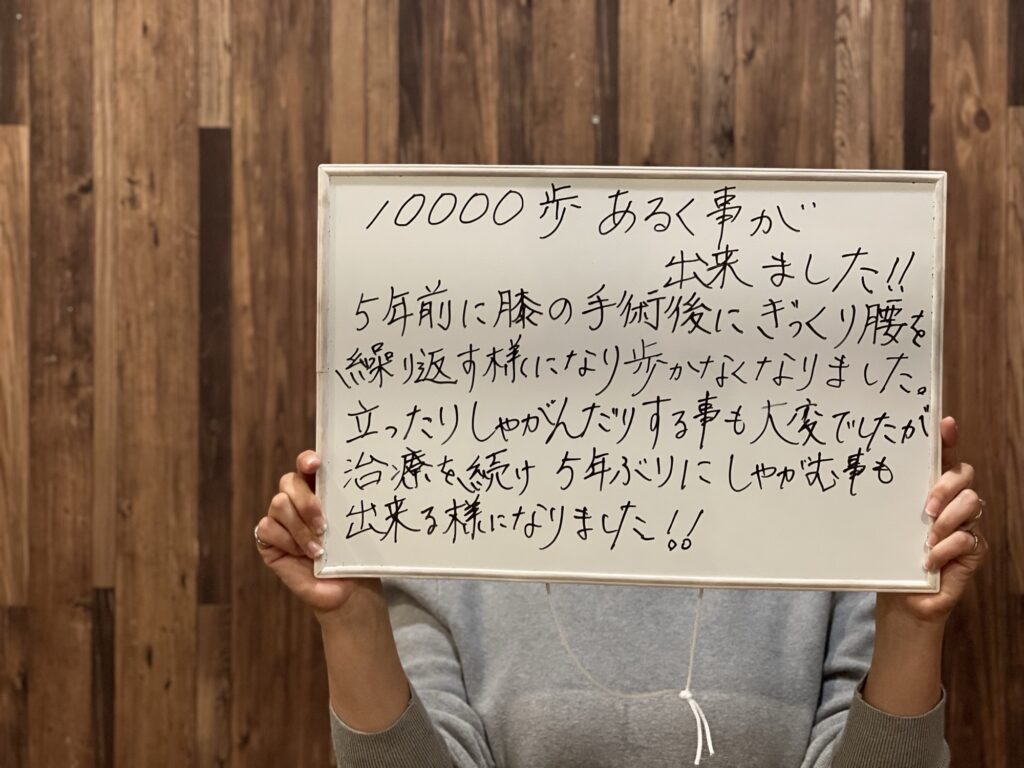 10000歩 あるく事が
出来ました!!
5年前に膝の手術後にぎっくり腰を
繰り返す様になり歩かなくなりました。
立ったりしゃがんだりする事も大変でしたが
治療を続け 5年ぶりにしゃがむ事も
出来る様になりました!!